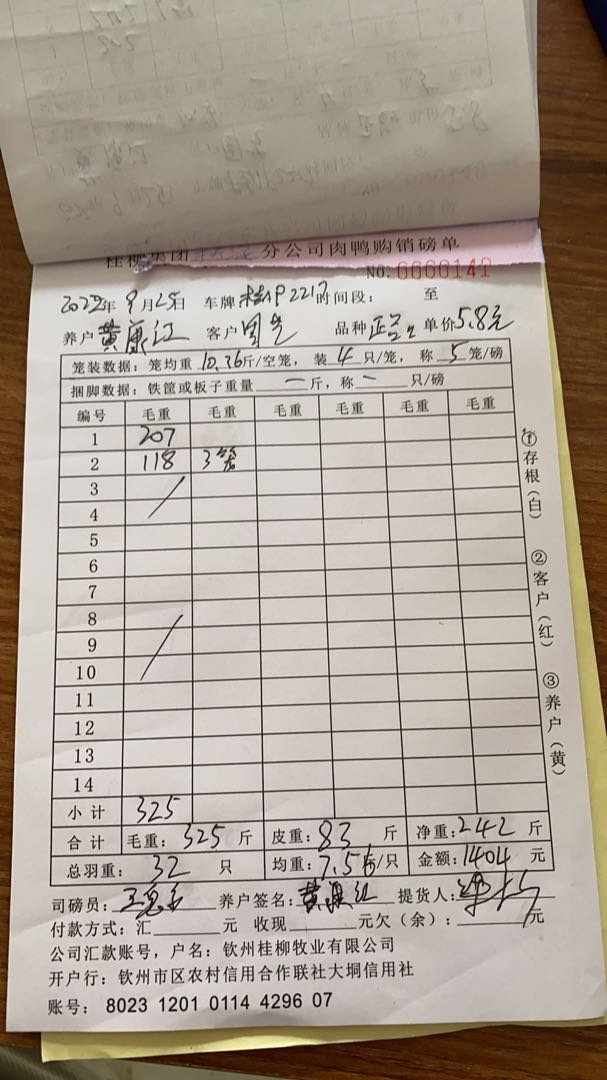 分公司肉鸭购销磅单
No. 0000141
2022年9月25日 车牌 桂P2217 时间段: 至
养户 黄康江 客户 品种 单价5.8元
笼装数据: 笼均重10.36斤/空笼, 装4只/笼, 称5笼/磅
捆脚数据: 铁筐或板子重量 一 斤, 称 一 只/磅
编号 毛重 毛重 毛重 毛重 毛重 毛重
1 207
2 118 3笼
3
4
5
6
7
8
9
10
11
12
13
14
小计 325
合计 毛重: 325 斤 皮重: 83 斤 净重: 242 斤
总羽重: 32 只 均重: 7.56/只 金额: 1404 元
司磅员: 养户签名: 黄康江 提货人:
付款方式: 汇 元 收现 元欠(余): 元
公司汇款账号, 户名: 钦州桂柳牧业有限公司
开户行: 钦州市区农村信用合作联社大垌信用社
账号: 8023 1201 0114 4296 07
①存根(白)
②客户(红)
③养户(黄)